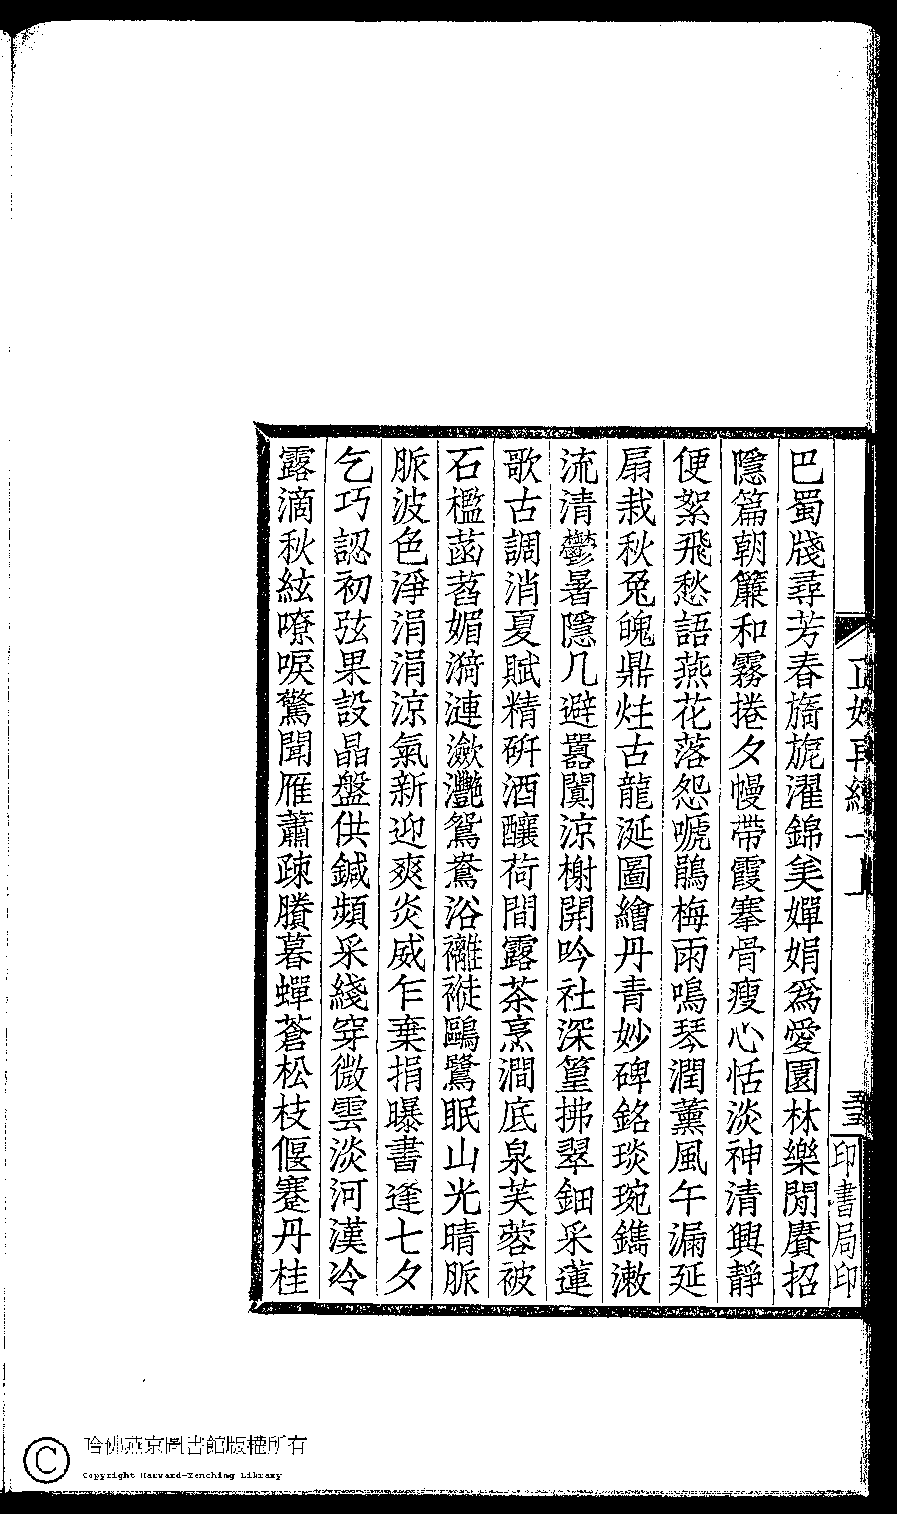 正始再續一上
印書局印
巴蜀牋尋芳春旖旎濯錦矣嬋娟爲愛園林樂閒賡招
隱篇朝簾和霧捲夕幔帶霞搴骨瘦心恬淡神清興靜
便絮飛愁語燕花落怨嗁鵑梅雨鳴琴潤薰風午漏延
扇栽秋兔魄鼎炷古龍涎圖繪丹青妙碑銘琰琬鐫漱
流清鬱暑隱几避囂闐涼榭開吟社深篁拂翠鈿采蓮
歌古調消夏賦精硏酒釀荷間露茶烹澗底泉芙蓉被
石檻菡萏媚漪漣瀲灩鴛鴦浴褵褷鷗鷺眠山光晴脈
脈波色淨涓涓涼氣新迎爽炎威乍棄捐曝書逢七夕
乞巧認初弦果設晶盤供鍼頻采綫穿微雲淡河漢冷
露滴秋絃嘹唳驚聞雁蕭疎賸暮蟬蒼松枝偃蹇丹桂
哈佛燕京圖書館版權所有
Copyright Harvard-Yenching Library